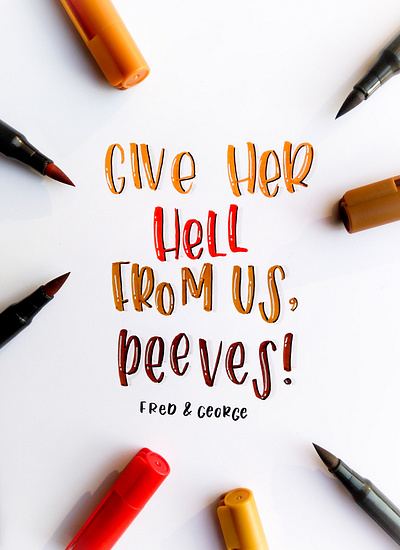 GIVE HER
HELL
FROM US,
PEEVES!
FRED & GEORGE